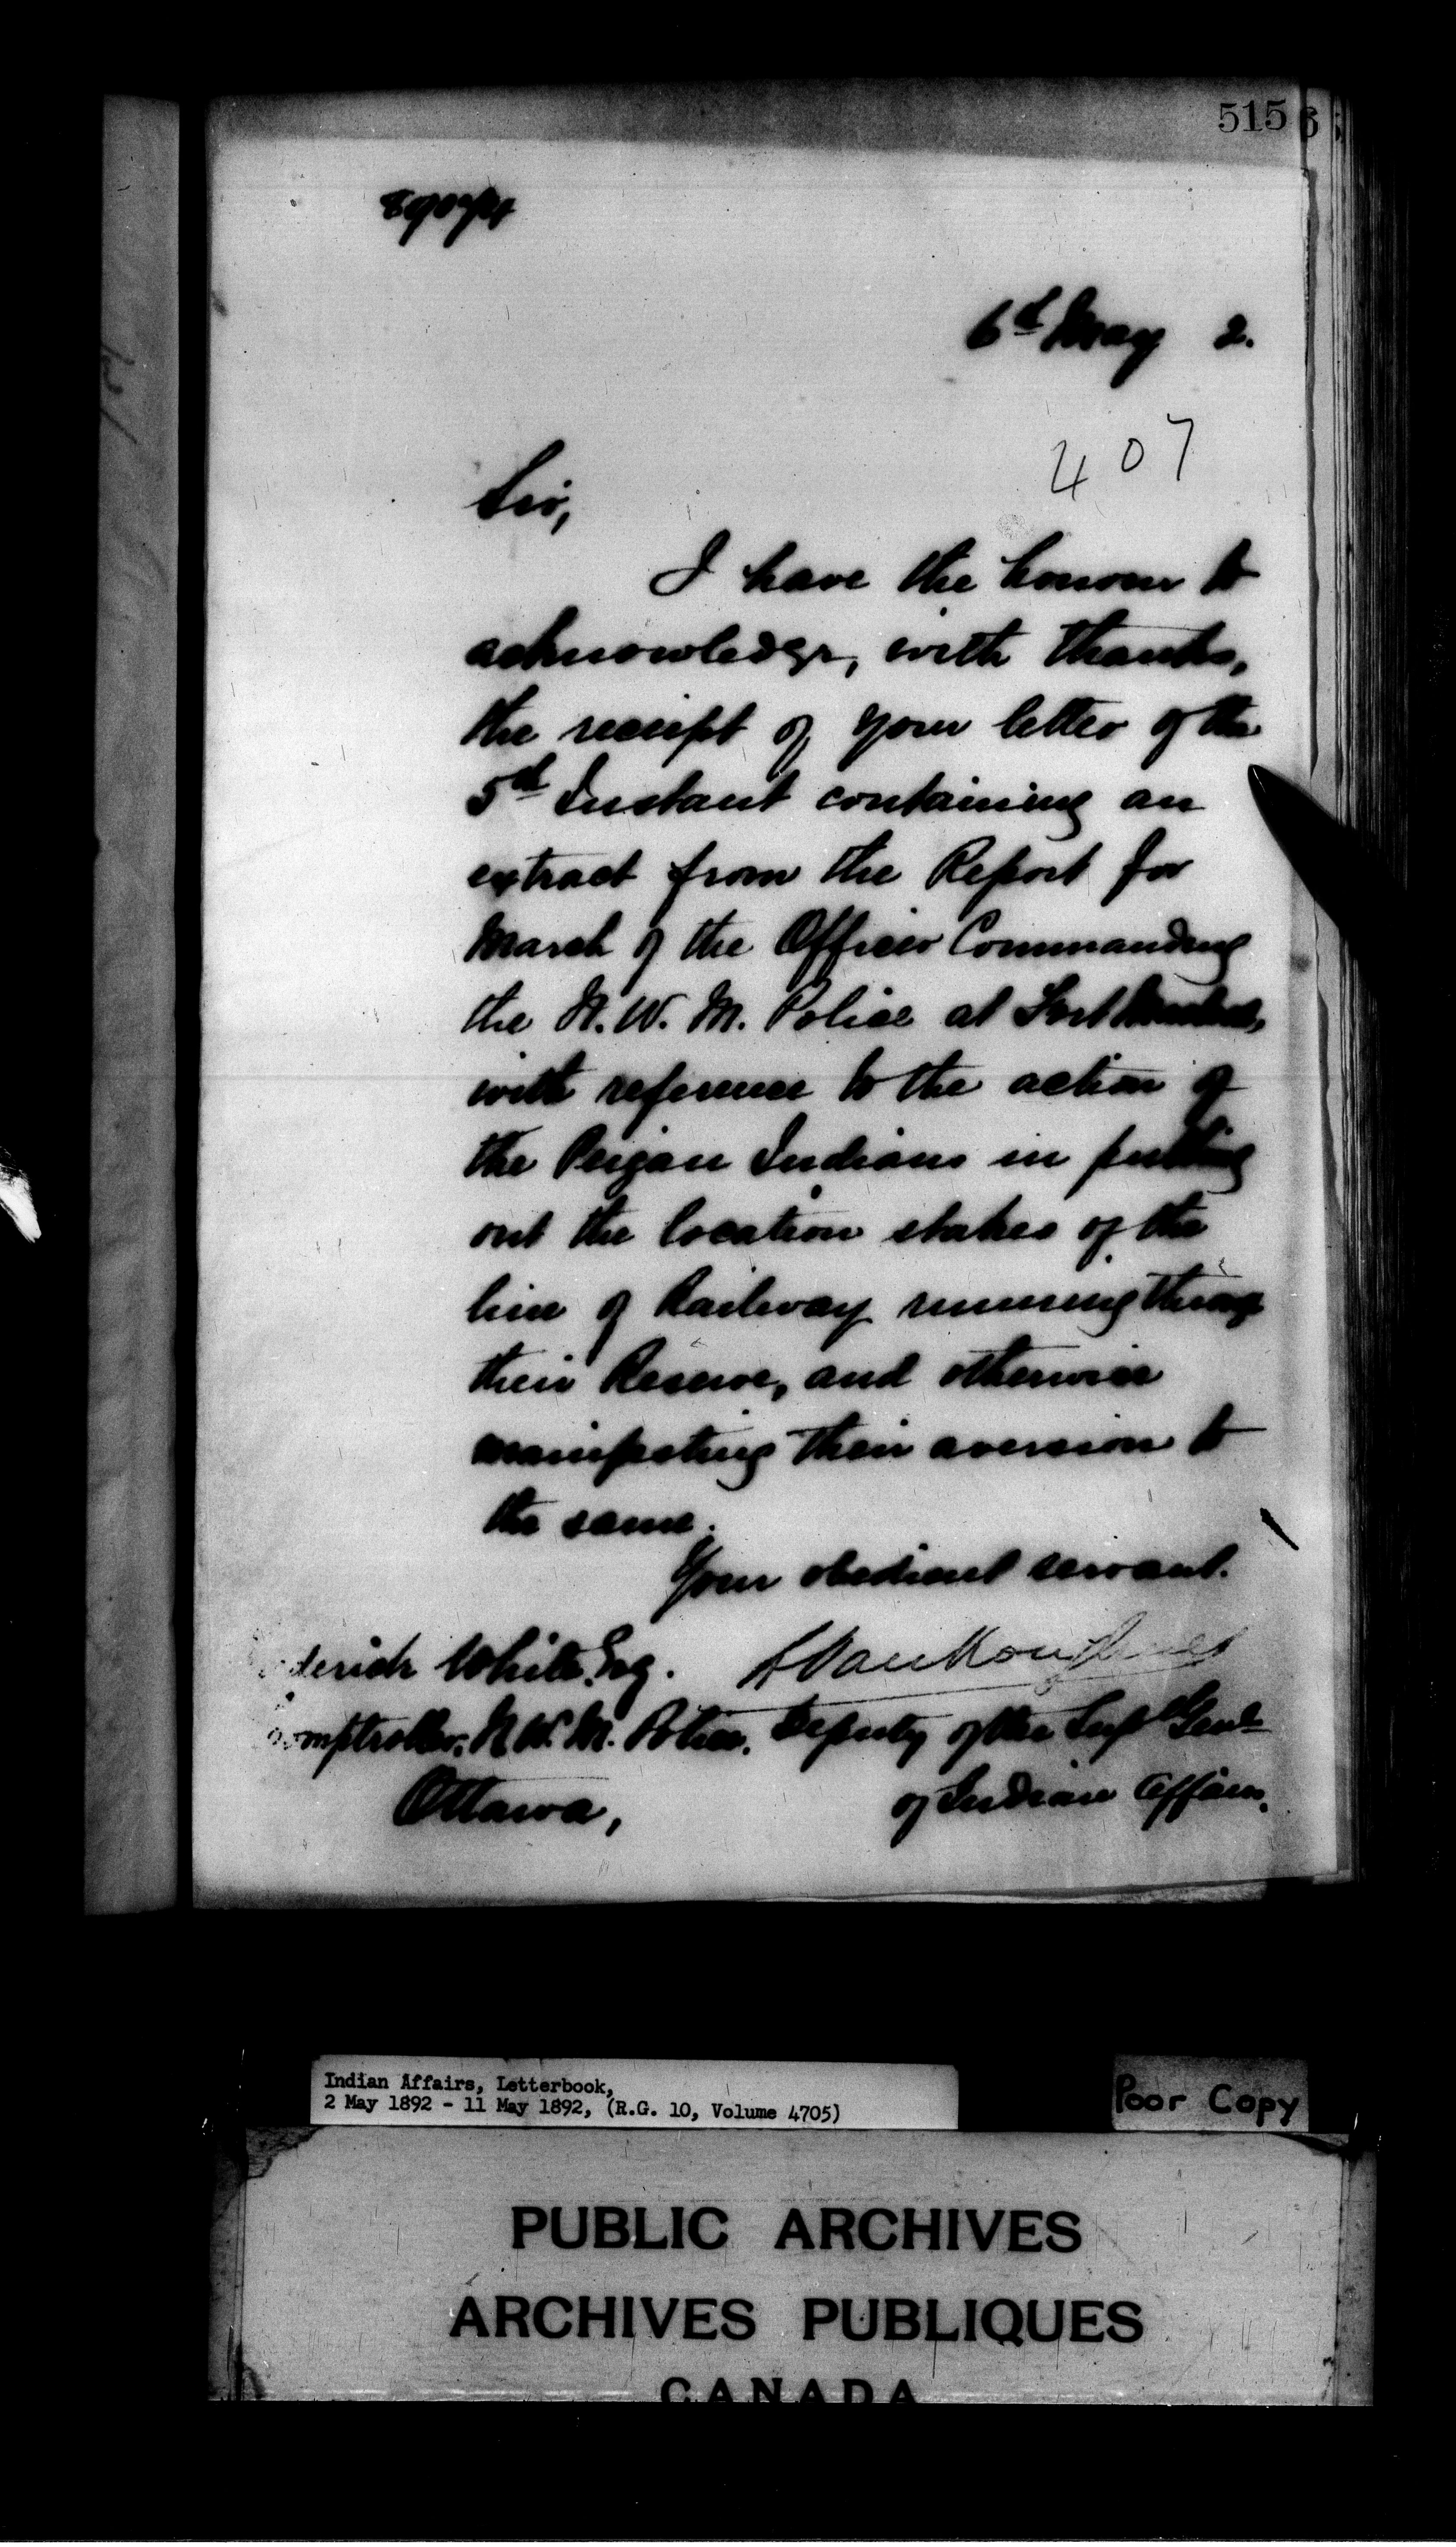 515
6th May 2.
407
Sir,
I have the honour to
acknowledge, with thanks,
the receipt of your letter of the
5th Instant containing an
extract from the Report for
March of the Officer Commanding
the N. W. M. Police at Fort
with reference to the action of
the Peigan Indians in pulling
out the location stakes of the
line of Railway running through
their Reserve, and otherwise
manifesting their aversion to
the same.
Your obedient servant.
L Vankoughnet
derick White, Esq.
omptroller, N. W. M. Police. Deputy of the Supt Genl
Ottawa, of Indian Affairs.
Indian Affairs, Letterbook,
2 May 1892 - 11 May 1892, (R.G. 10, Volume 4705)
Poor Copy
PUBLIC ARCHIVES
ARCHIVES PUBLIQUES
CANADA